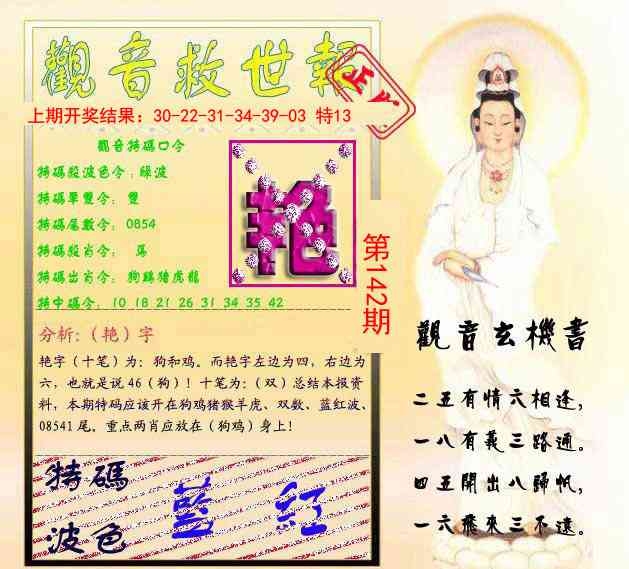 觀音救世報
正
上期开奖结果：30-22-31-34-39-03 特13
觀音特碼口令
特碼殺波色令：綠波
特碼單雙令： 雙
特碼尾數令： 0854
特碼殺肖令： 馬
特碼出肖令： 狗雞豬虎龍
特中碼令： 10 18 21 26 31 34 35 42
艳
第142期
分析:（艳）字
艳字（十笔）为：狗和鸡。而艳字左边为四，右边为
六，也就是说 46（狗）！十笔为：（双）总结本报资
料，本期特码应该开在狗鸡猪猴羊虎、双数、蓝红波、
08541 尾。重点两肖应放在（狗鸡）身上！
特碼
波色
藍 紅
觀音玄機書
二五有情六相逢，
一八有義三路通。
四五開出八歸帆，
一六飛來三不遠。